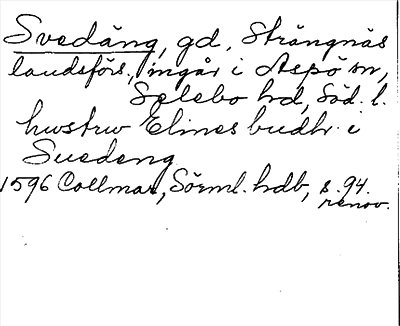 Svedäng, gd, Strängnäs
landsförs., ingår i Aspö sn,
Selebo hd, Söd. l.
hwstrw Elines budh i
Suedeng
1596 Collmar, Sörml. hdb, s. 94.
renov.